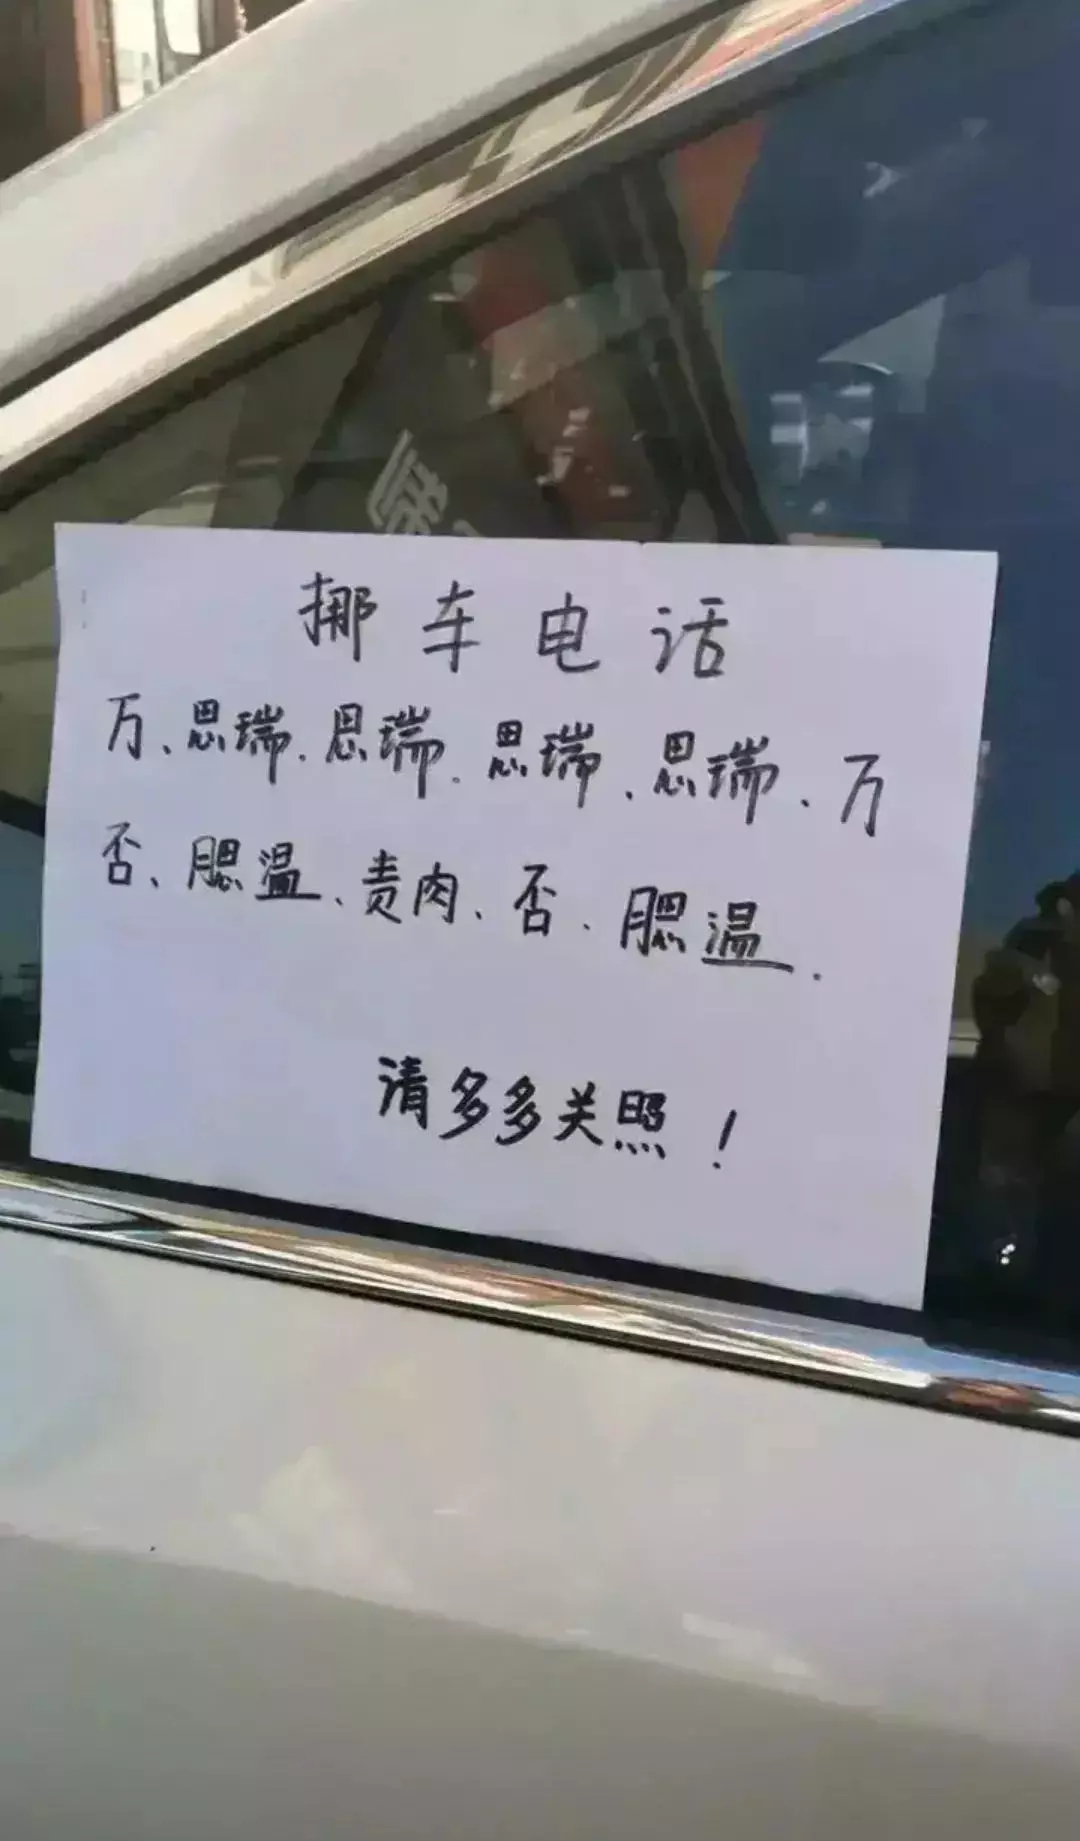 挪车电话
万、思瑞、思瑞、思瑞、思瑞、万
否、腮温、责肉、否、腮温.
请多多关照!